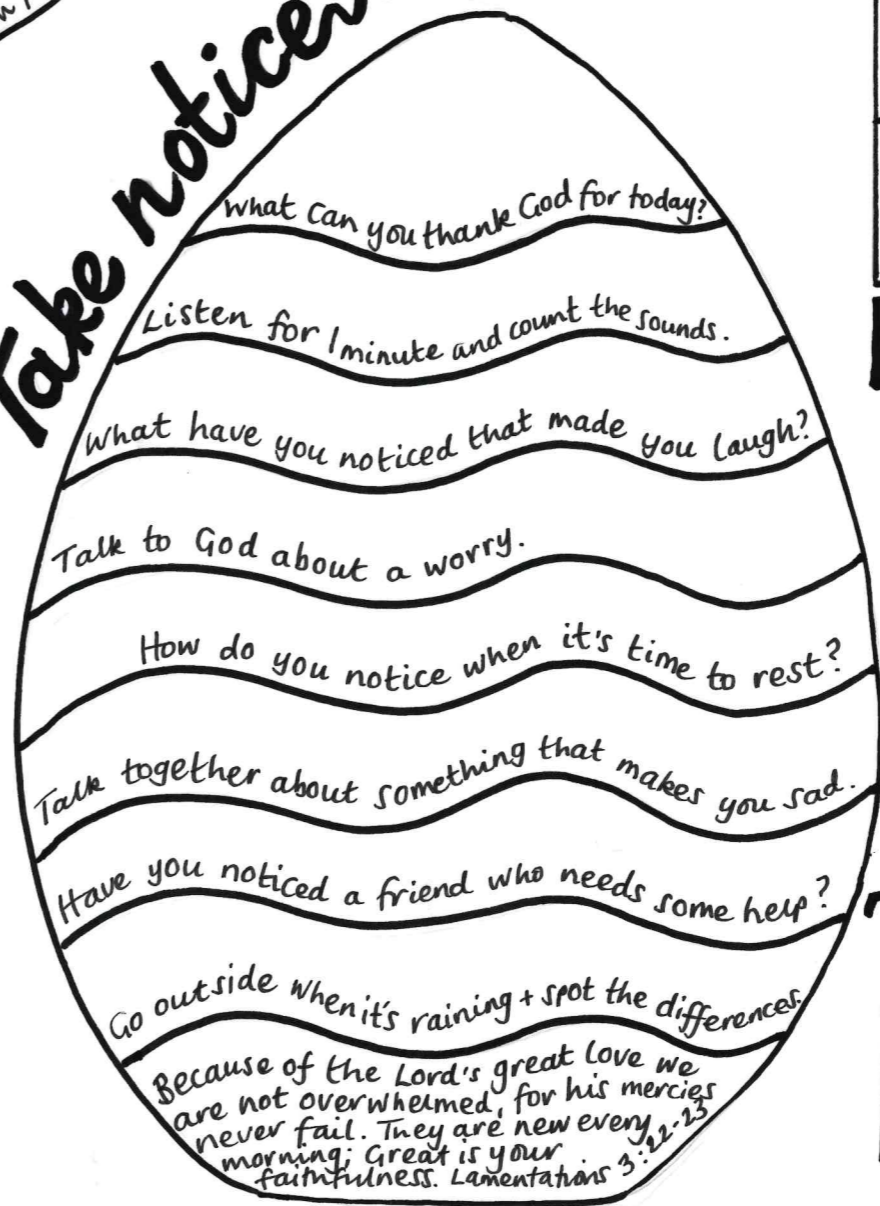 Take notice
What can you thank God for today?
Listen for 1 minute and count the sounds.
What have you noticed that made you laugh?
Talk to God about a worry.
How do you notice when it's time to rest?
Talk together about something that makes you sad.
Have you noticed a friend who needs some help?
Go outside when it's raining + spot the differences.
Because of the Lord's great love we
are not overwhelmed, for his mercies
never fail. They are new every
morning; Great is your
faithfulness. Lamentations 3:22-23